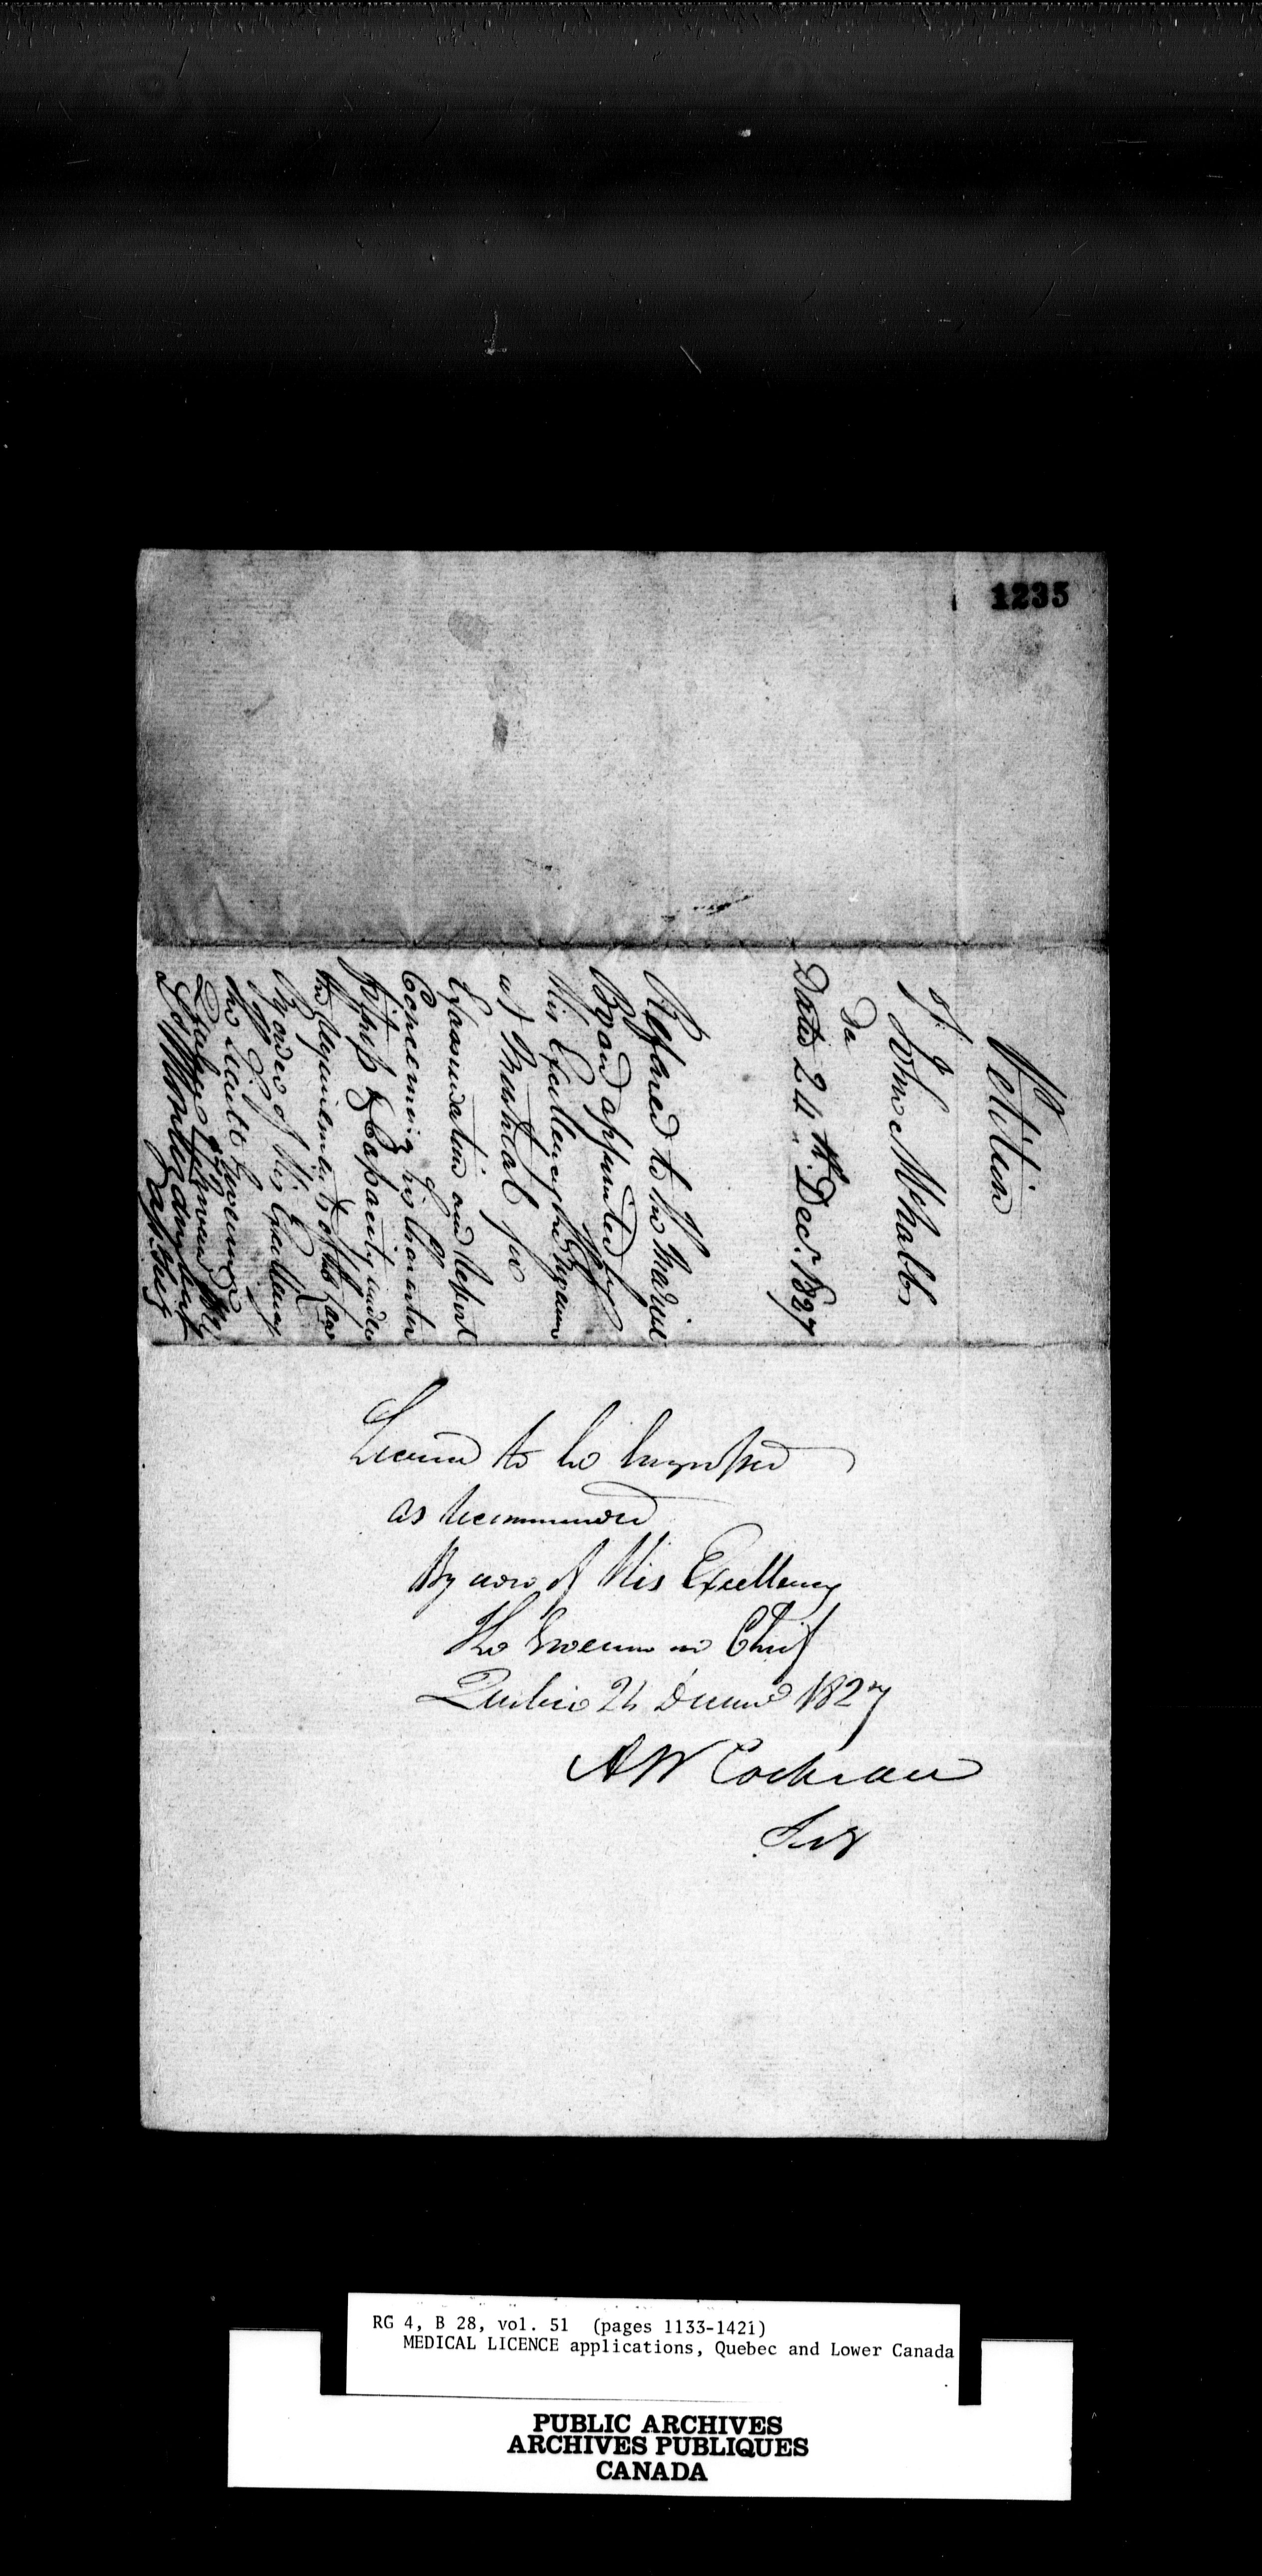 1235
Petition
of John Whalls
Dated 24th. Decr. 1827
Referred to the Medical
Board appointed by
His Excellency the Governor
at Montreal for
Examination and Report
Concerning his Character
Fitness & Capacity under
the Requirements of the Law
By order of His Excellency
Quebec
Montgomery
License to be Engrossed
as recommended
By order of His Excellency
The Governor in Chief
Quebec 24 1827
A W Cochran
Secy
RG 4, B 28, vol. 51 (pages 1133-1421)
MEDICAL LICENCE applications, Quebec and Lower Canada
PUBLIC ARCHIVES
ARCHIVES PUBLIQUES
CANADA